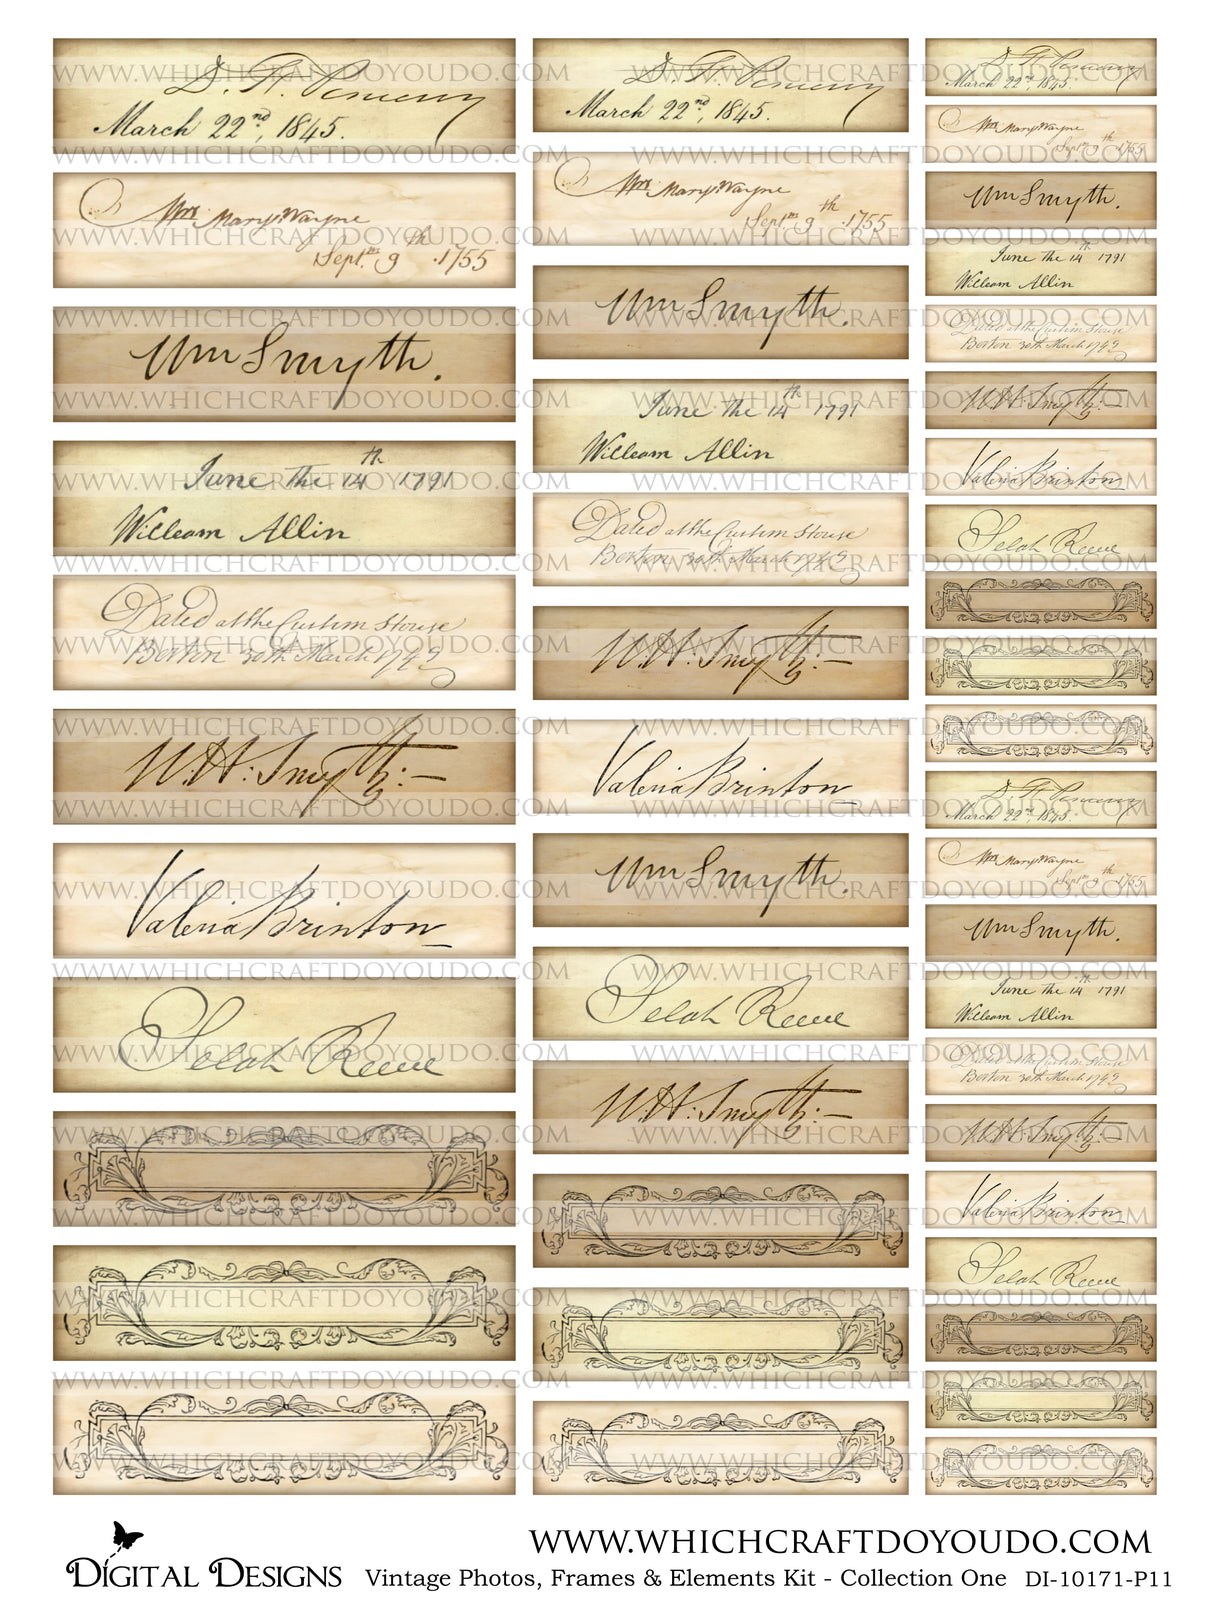 D. H. Pomeroy
March 22nd, 1845.
Mrs. Mary Wayne
Septm. 9th .1755
Wm Smyth.
June the 14th 1791
William Allin
Dated at the Custom House
Boston 30th March
W. H: Smyth:—
Valeria Brinton
Selah Reeve
D. H. Pomeroy
March 22nd, 1845.
Mrs. Mary Wayne
Septm. 9th .1755
Wm Smyth.
June the 14th 1791
William Allin
Dated at the Custom House
Boston 30th March
W. H: Smyth:—
Valeria Brinton
Wm Smyth.
Selah Reeve
W. H: Smyth:—
D. H. Pomeroy
March 22nd, 1845.
Mrs. Mary Wayne
Septm. 9th .1755
Wm Smyth.
June the 14th 1791
William Allin
Dated at the Custom House
Boston 30th March
W. H: Smyth:—
Valeria Brinton
Selah Reeve
D. H. Pomeroy
March 22nd, 1845.
Mrs. Mary Wayne
Septm. 9th .1755
Wm Smyth.
June the 14th 1791
William Allin
Dated at the Custom House
Boston 30th March
W. H: Smyth:—
Valeria Brinton
Selah Reeve
WWW.WHICHCRAFTDOYOUDO.COM
DIGITAL DESIGNS Vintage Photos, Frames & Elements Kit - Collection One DI-10171-P11